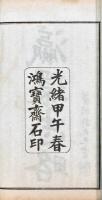 光緒甲午春
鴻寶齋石印